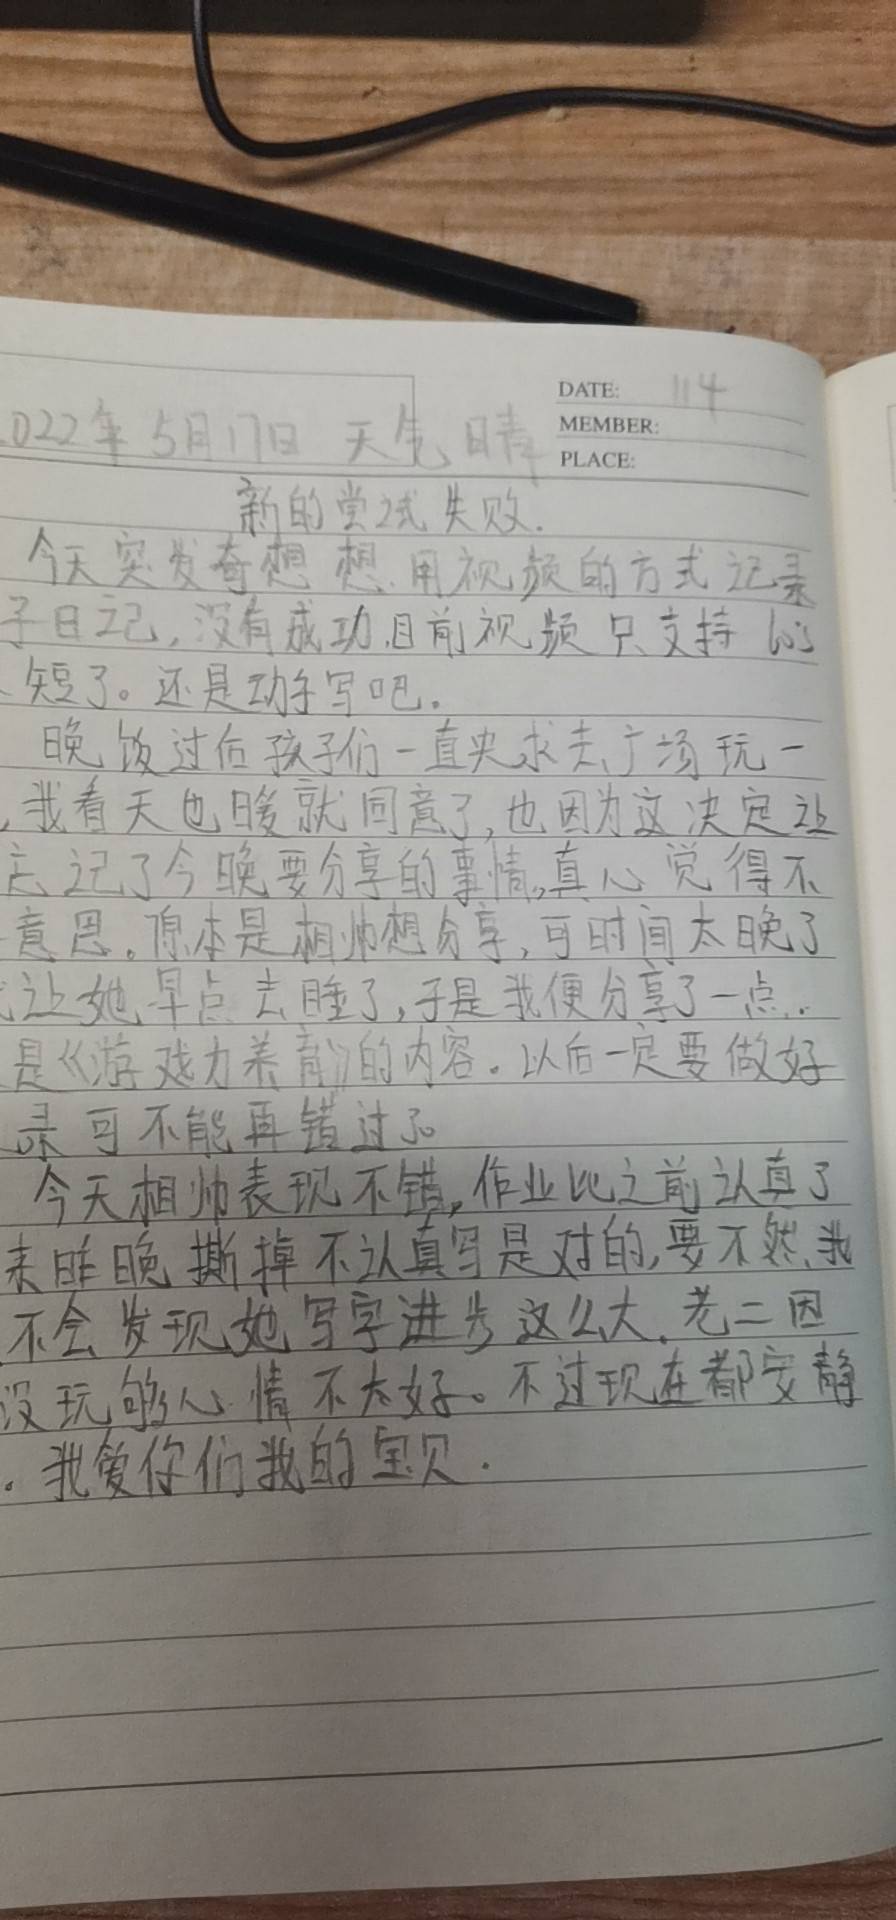 DATE: 114
MEMBER:
PLACE:
2022年5月17日 天气 晴
新的尝试失败.
今天突发奇想 想用视频的方式记录
子日记,没有成功,目前视频只支持 60s
短了。还是动手写吧.
晚饭过后孩子们一直央求去广场玩一
,我看天也暖就同意了,也因为这决定让
忘记了今晚要分享的事情,真心觉得不
意思。原本是相帅想分享,可时间太晚了
让她早点去睡了,于是我便分享了一点.
是《游戏力养育》的内容。以后一定要做好
录可不能再错过了。
今天相帅表现不错,作业比之前认真了
来昨晚撕掉不认真写是对的,要不然,我
不会发现她写字进步这么大,老二因
没玩够心情不太好。不过现在都安静
。我爱你们我的宝贝.